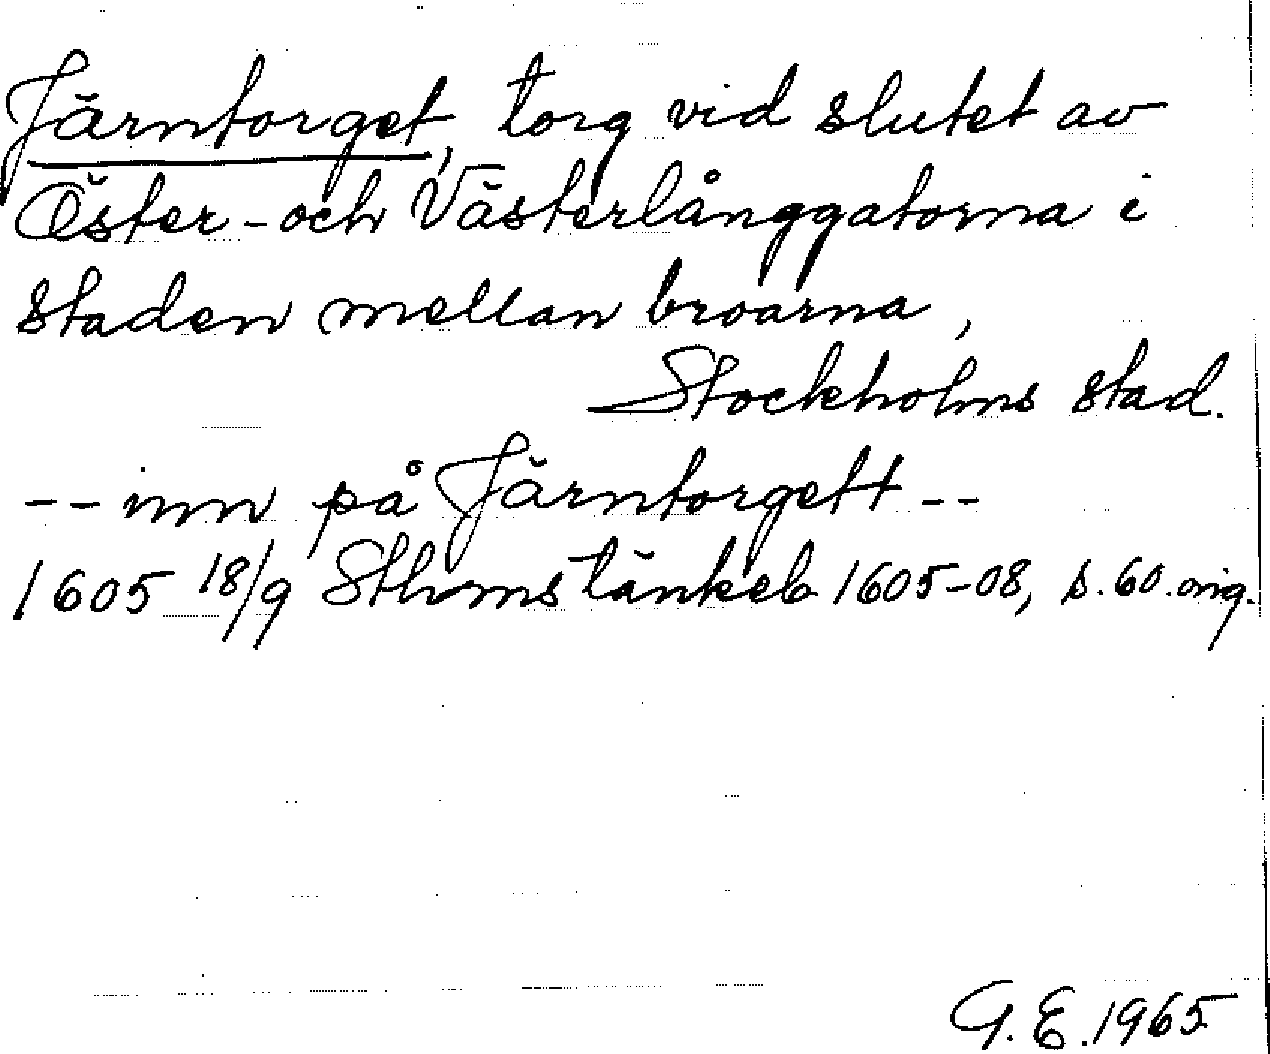 Järntorget, torg vid slutet av
Öster- och Västerlånggatorna i
staden mellan broarna,
Stockholms stad.
-- inn på Järntorgett --
1605 18/9 Sthms tänkeb. 1605-08, s. 60. orig.
G. E. 1965